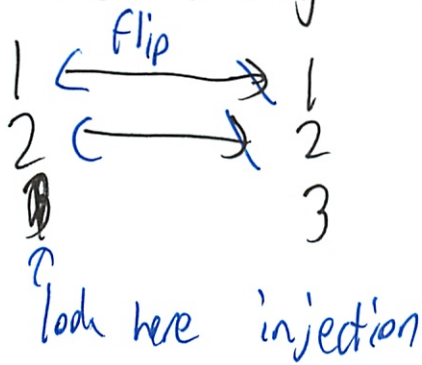 flip
1 1
2 2
3
look here injection